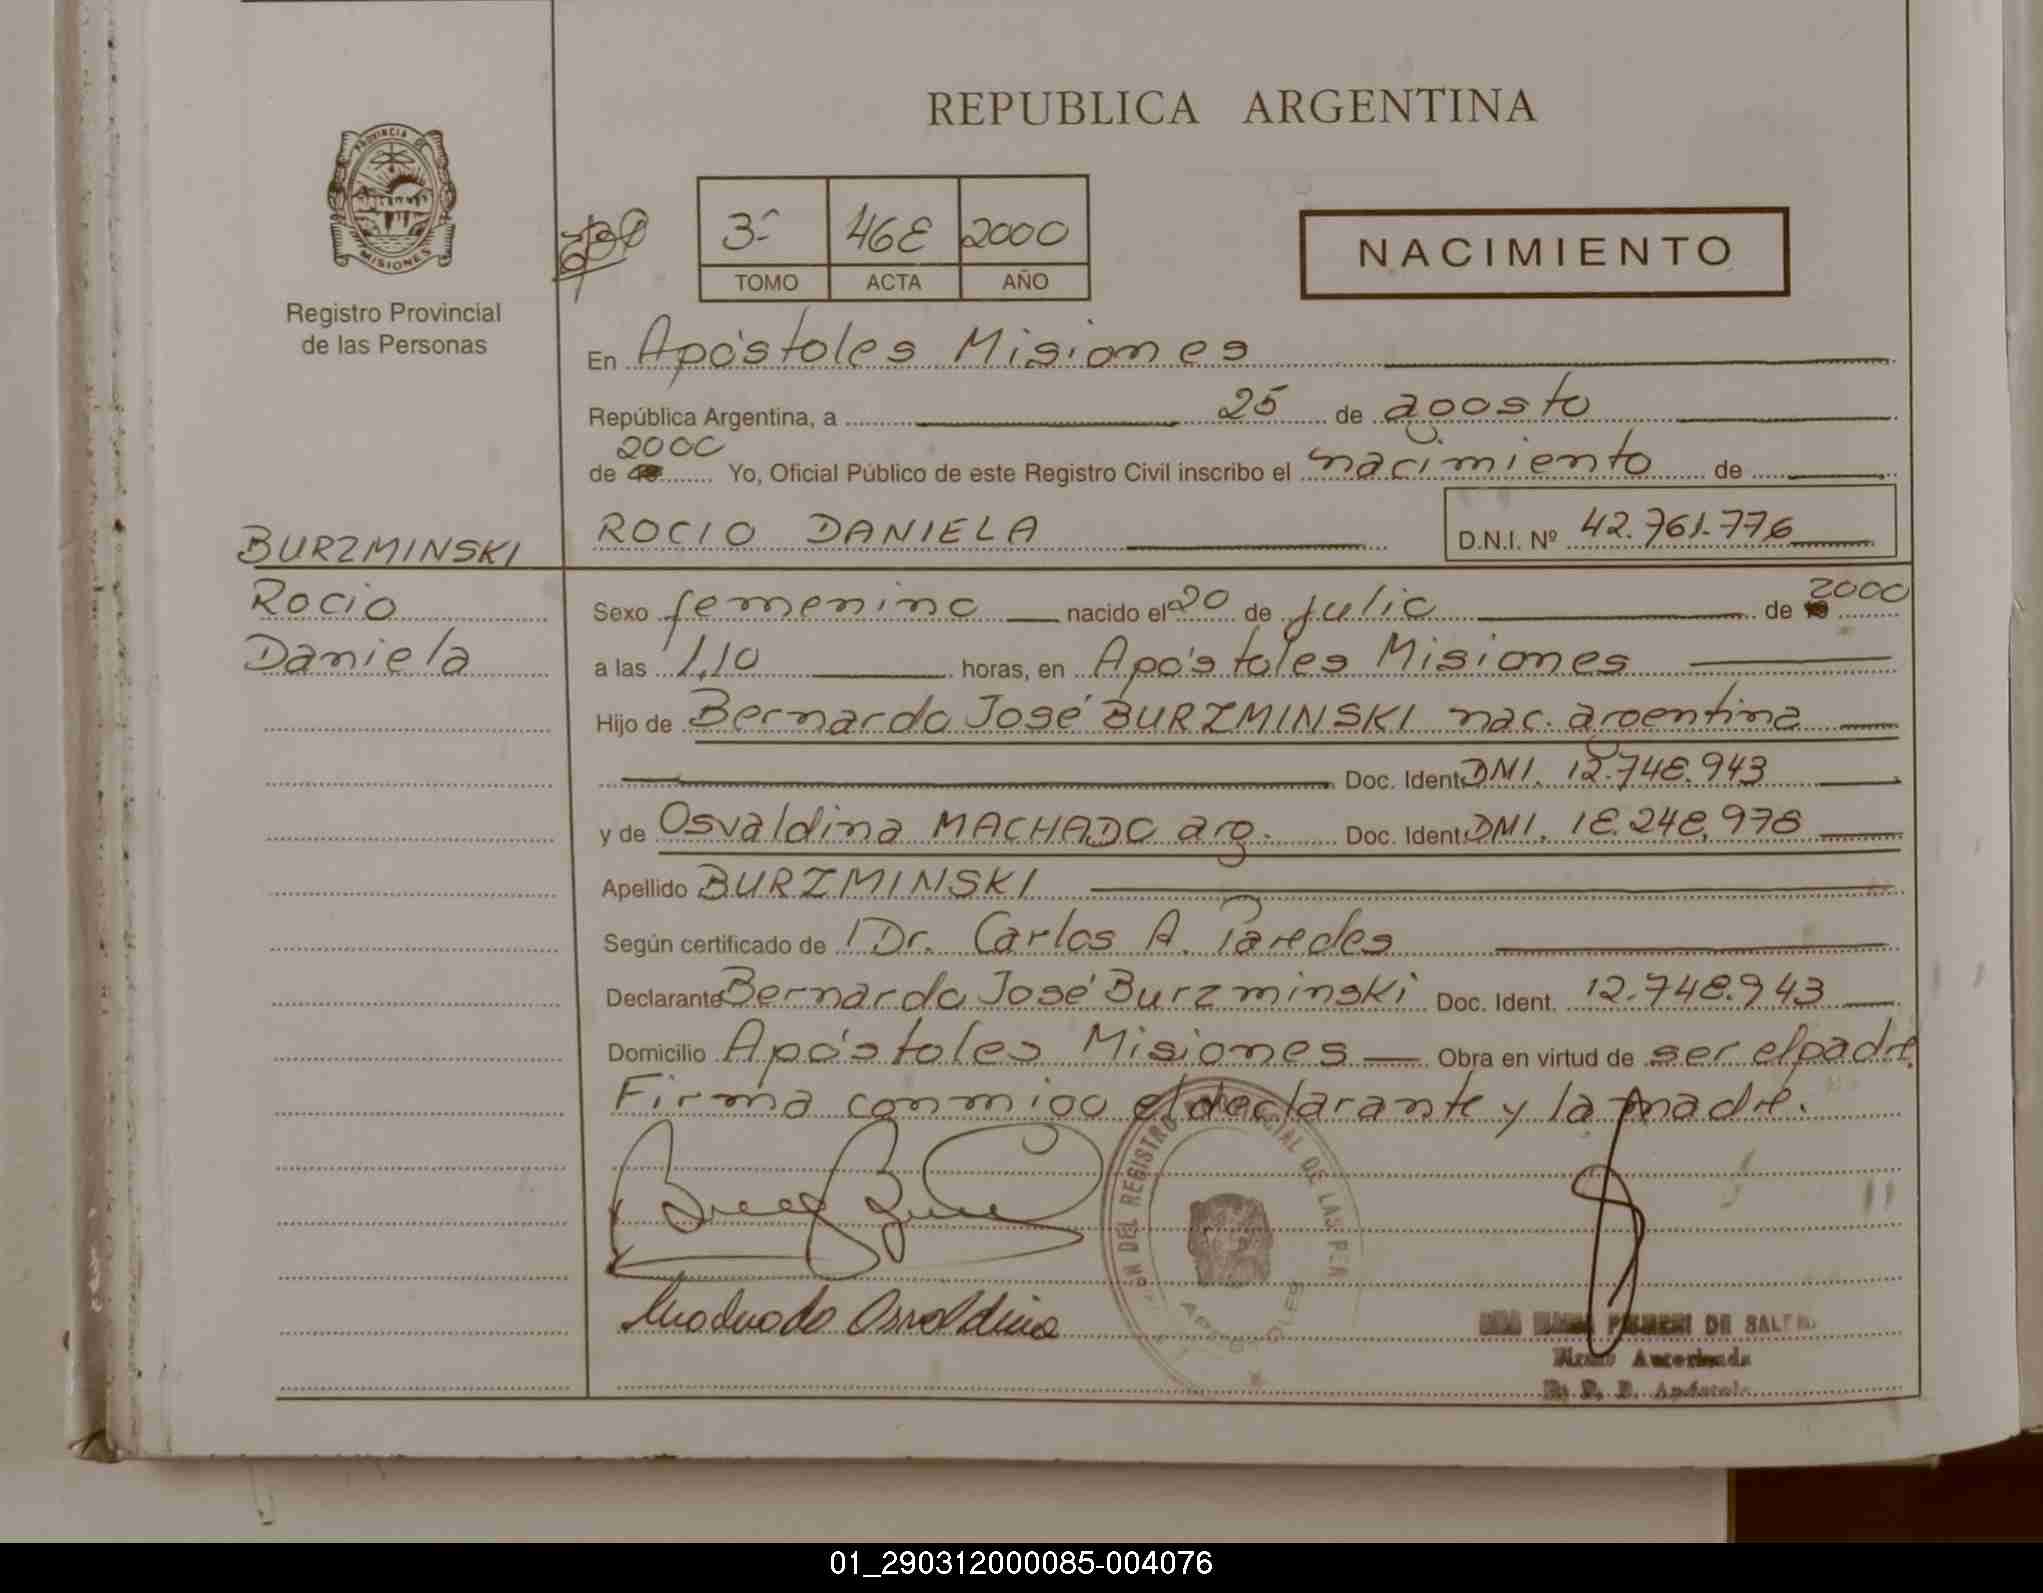 REPUBLICA ARGENTINA
PROVINCIA DE
MISIONES
Registro Provincial
de las Personas
3º 468 2000
TOMO ACTA AÑO
NACIMIENTO
En Apóstoles Misiones
República Argentina, a 25 de agosto
de 2000 Yo, Oficial Público de este Registro Civil inscribo el nacimiento de
BURZMINSKI
Rocio
Daniela
ROCIO DANIELA D.N.I. Nº 42.761.776
Sexo femenino nacido el 20 de julio de 2000
a las 1,10 horas, en Apóstoles Misiones
Hijo de Bernardo José BURZMINSKI nac. argentina
Doc. Ident. DNI. 12.748.943
y de Osvaldina MACHADO arg. Doc. Ident. DNI. 18.248.978
Apellido BURZMINSKI
Según certificado de Dr. Carlos A. Paredes
Declarante Bernardo José Burzminski Doc. Ident. 12.748.943
Domicilio Apóstoles Misiones Obra en virtud de ser el padre.
Firma conmigo el declarante y la madre.
DEL REGISTRO DE LAS PER
Osvaldina
DE
01_290312000085-004076